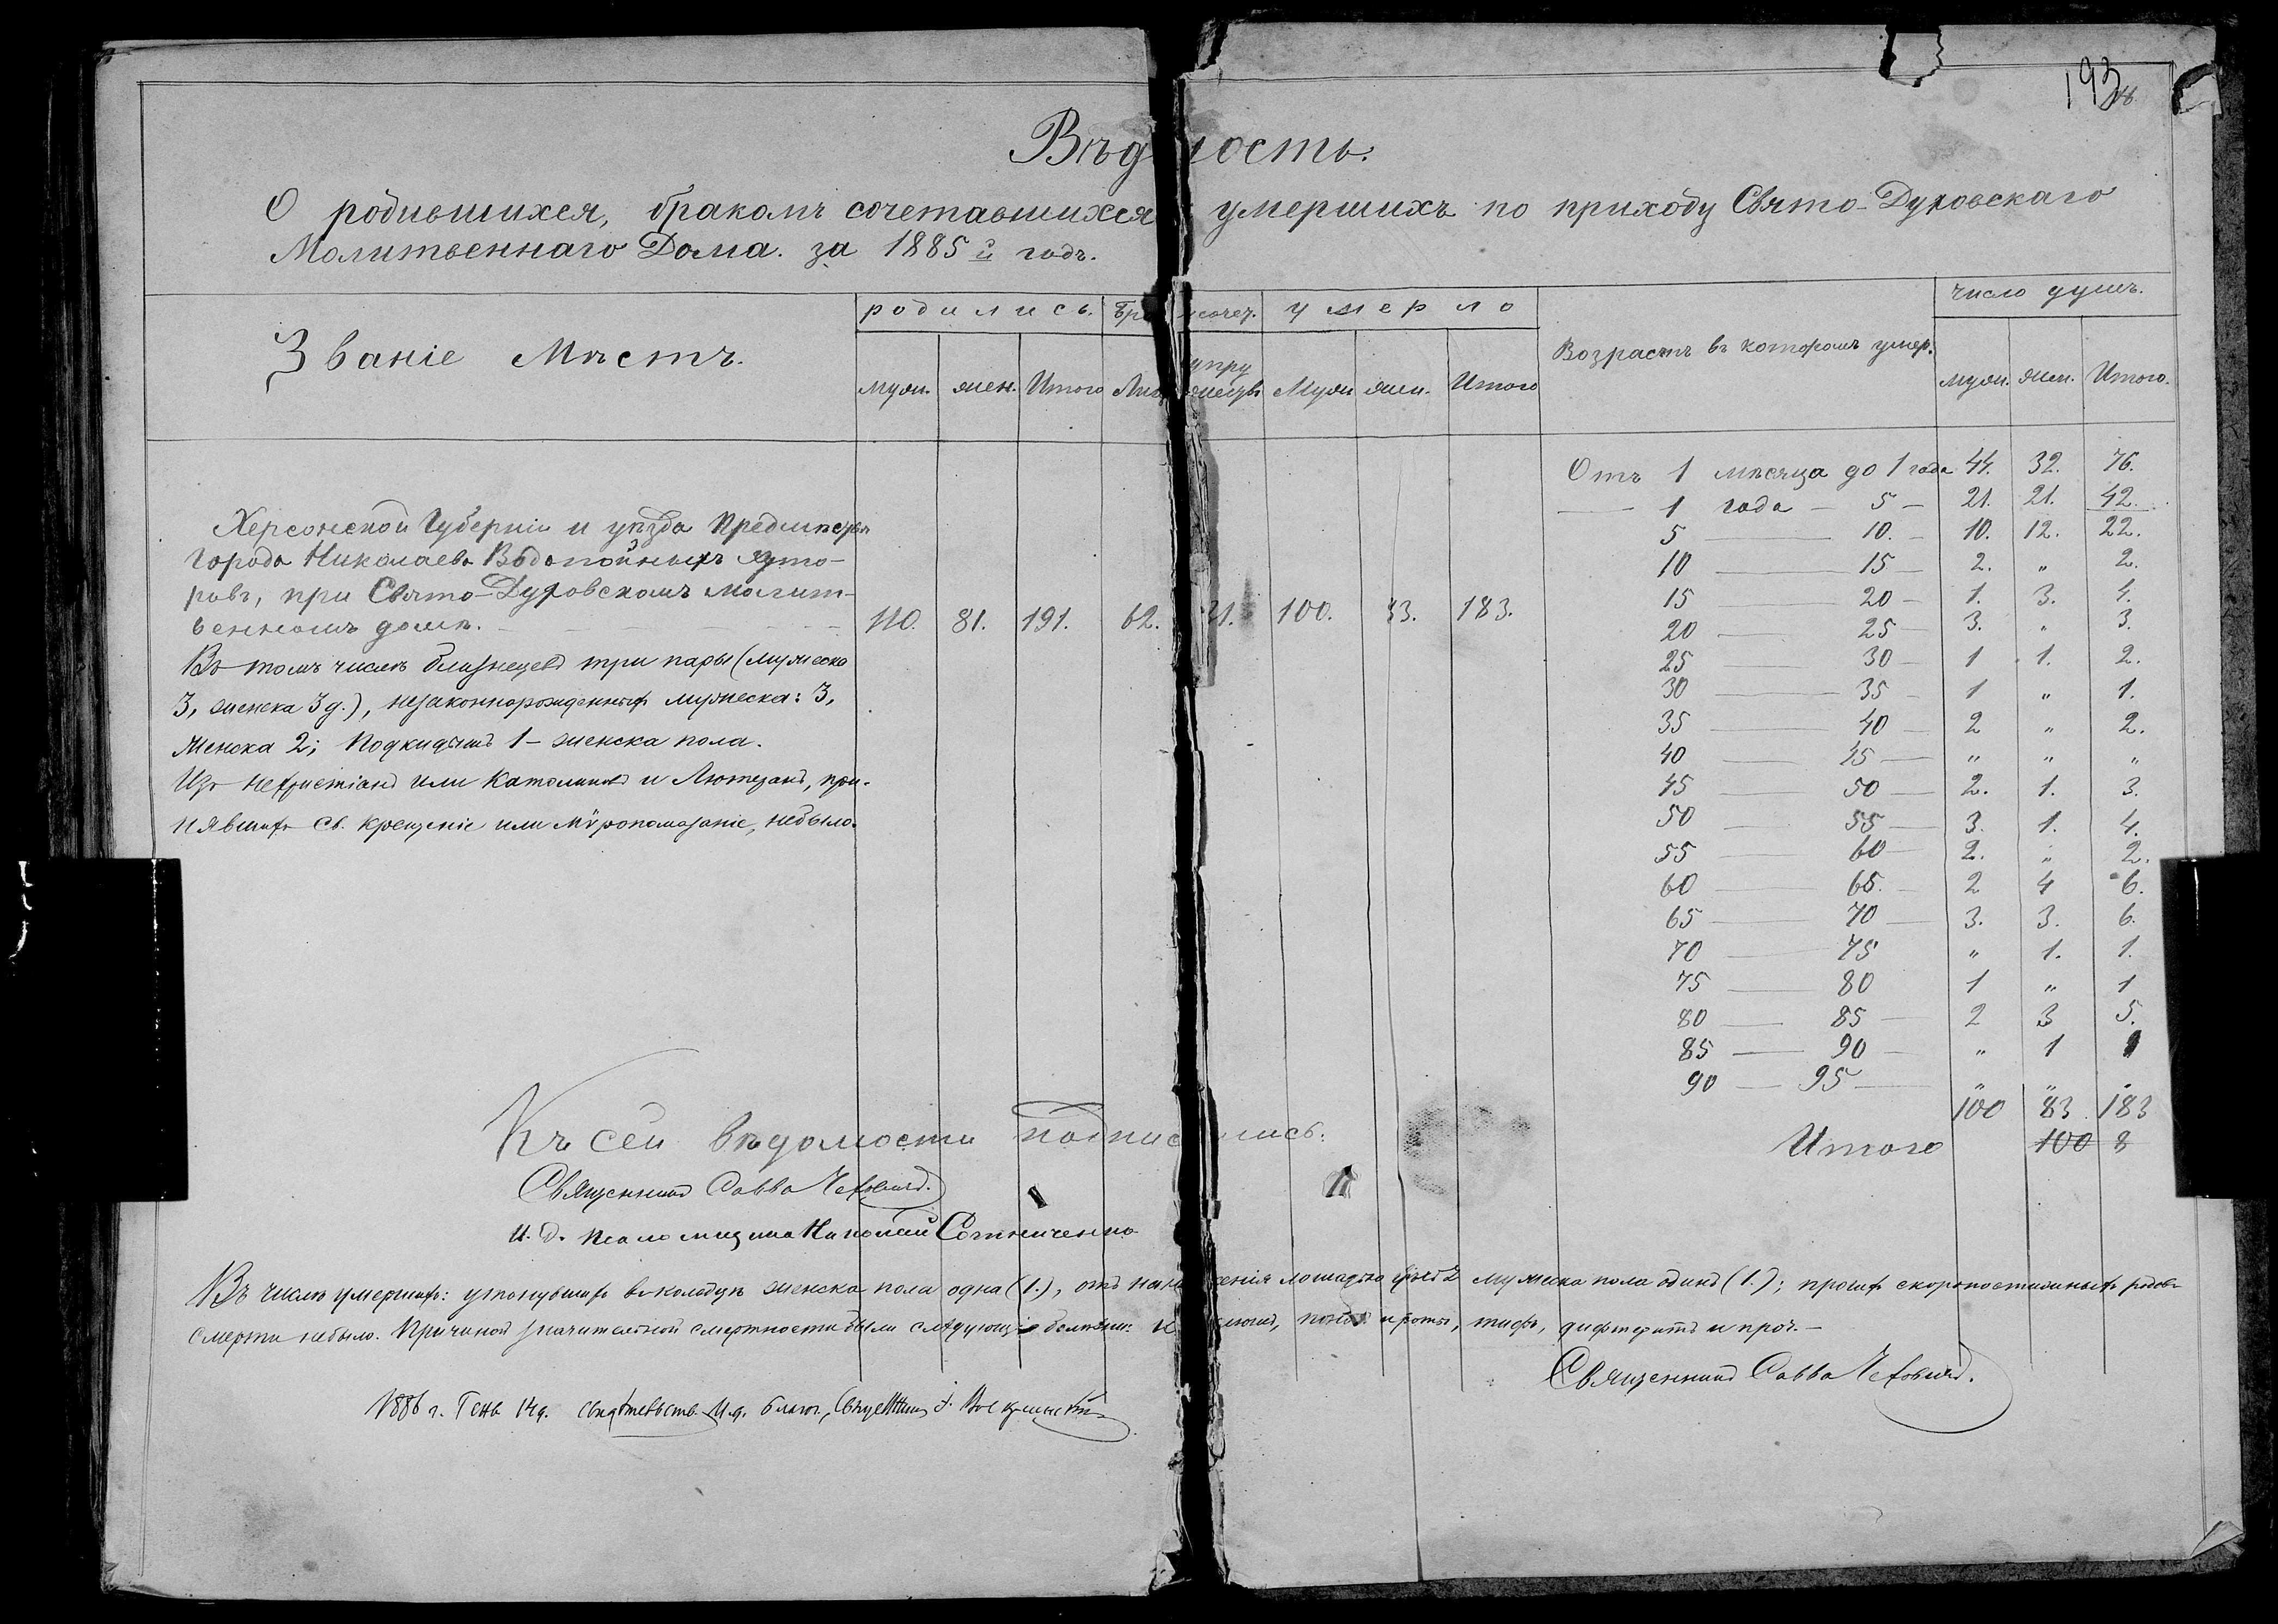 193
Вѣд ность.
О родившихся, бракомъ сочетавшихся умершихъ по приходу Свято-Духовскаго
Молитвеннаго Дома. за 1885й годъ.
Званіе Мѣстъ.
родились. Бра сочет. умерло
Возрастъ въ которомъ умер.
число душъ.
муж. жен. Итого Лиц Муж жен. Итого
муж. жен. Итого.
Херсонской Губерніи и уѣзда Предмѣстья
города Николаева Водопойныхъ хуто-
ровъ, при Свято-Духовскомъ молит-
венномъ домѣ. 110. 81. 191. 62. 31. 100. 83. 183.
Въ томъ числѣ близнецовъ три пары (мужеска
3, женска 3 д.), незаконнорожденныхъ мужеска: 3,
женска 2; Подкидышъ 1 - женска пола.
Изъ нехристіанъ или Католиковъ и Лютеранъ, при-
нявшихъ Св. Крещеніе или Мѵропомазаніе, небыло.
Отъ 1 мѣсяца до 1 года 44. 32. 76.
1 года - 5 - 21. 21. 42.
5 — 10. - 10. 12. 22.
10 — 15 - 2. „ 2.
15 — 20 - 1. 3. 4.
20 — 25 - 3. „ 3.
25 — 30 - 1 1. 2.
30 — 35 - 1 „ 1.
35 — 40 - 2 „ 2.
40 — 45 - „ „ „
45 — 50 - 2. 1. 3.
50 — 55 - 3. 1. 4.
55 — 60 - 2. „ 2.
60 — 65. - 2 4 6.
65 — 70 - 3. 3. 6.
70 — 75 „ 1. 1.
75 — 80 1 „ 1
80 — 85 - 2 3 5.
85 — 90 - „ 1 1
90 — 95 - „ „ „
100 83 183
Итого 100 8
Къ сей вѣдомости подпис лись:
Священникъ Савва
И. д. Псаломщика Николай Сотниченко
Въ числѣ умершихъ: утонувшихъ въ колодцѣ женска пола одна (1.), отъ лошадью мужеска пола одинъ (1.); прочихъ скоропостижныхъ родовъ
смерти небыло. Причиной значительной смертности были слѣдующія болѣзни: тифъ, дифтеритъ и проч. —
Священникъ Савва
1886 г. Генв 14 д. свидѣтельств. И.д. благоч.